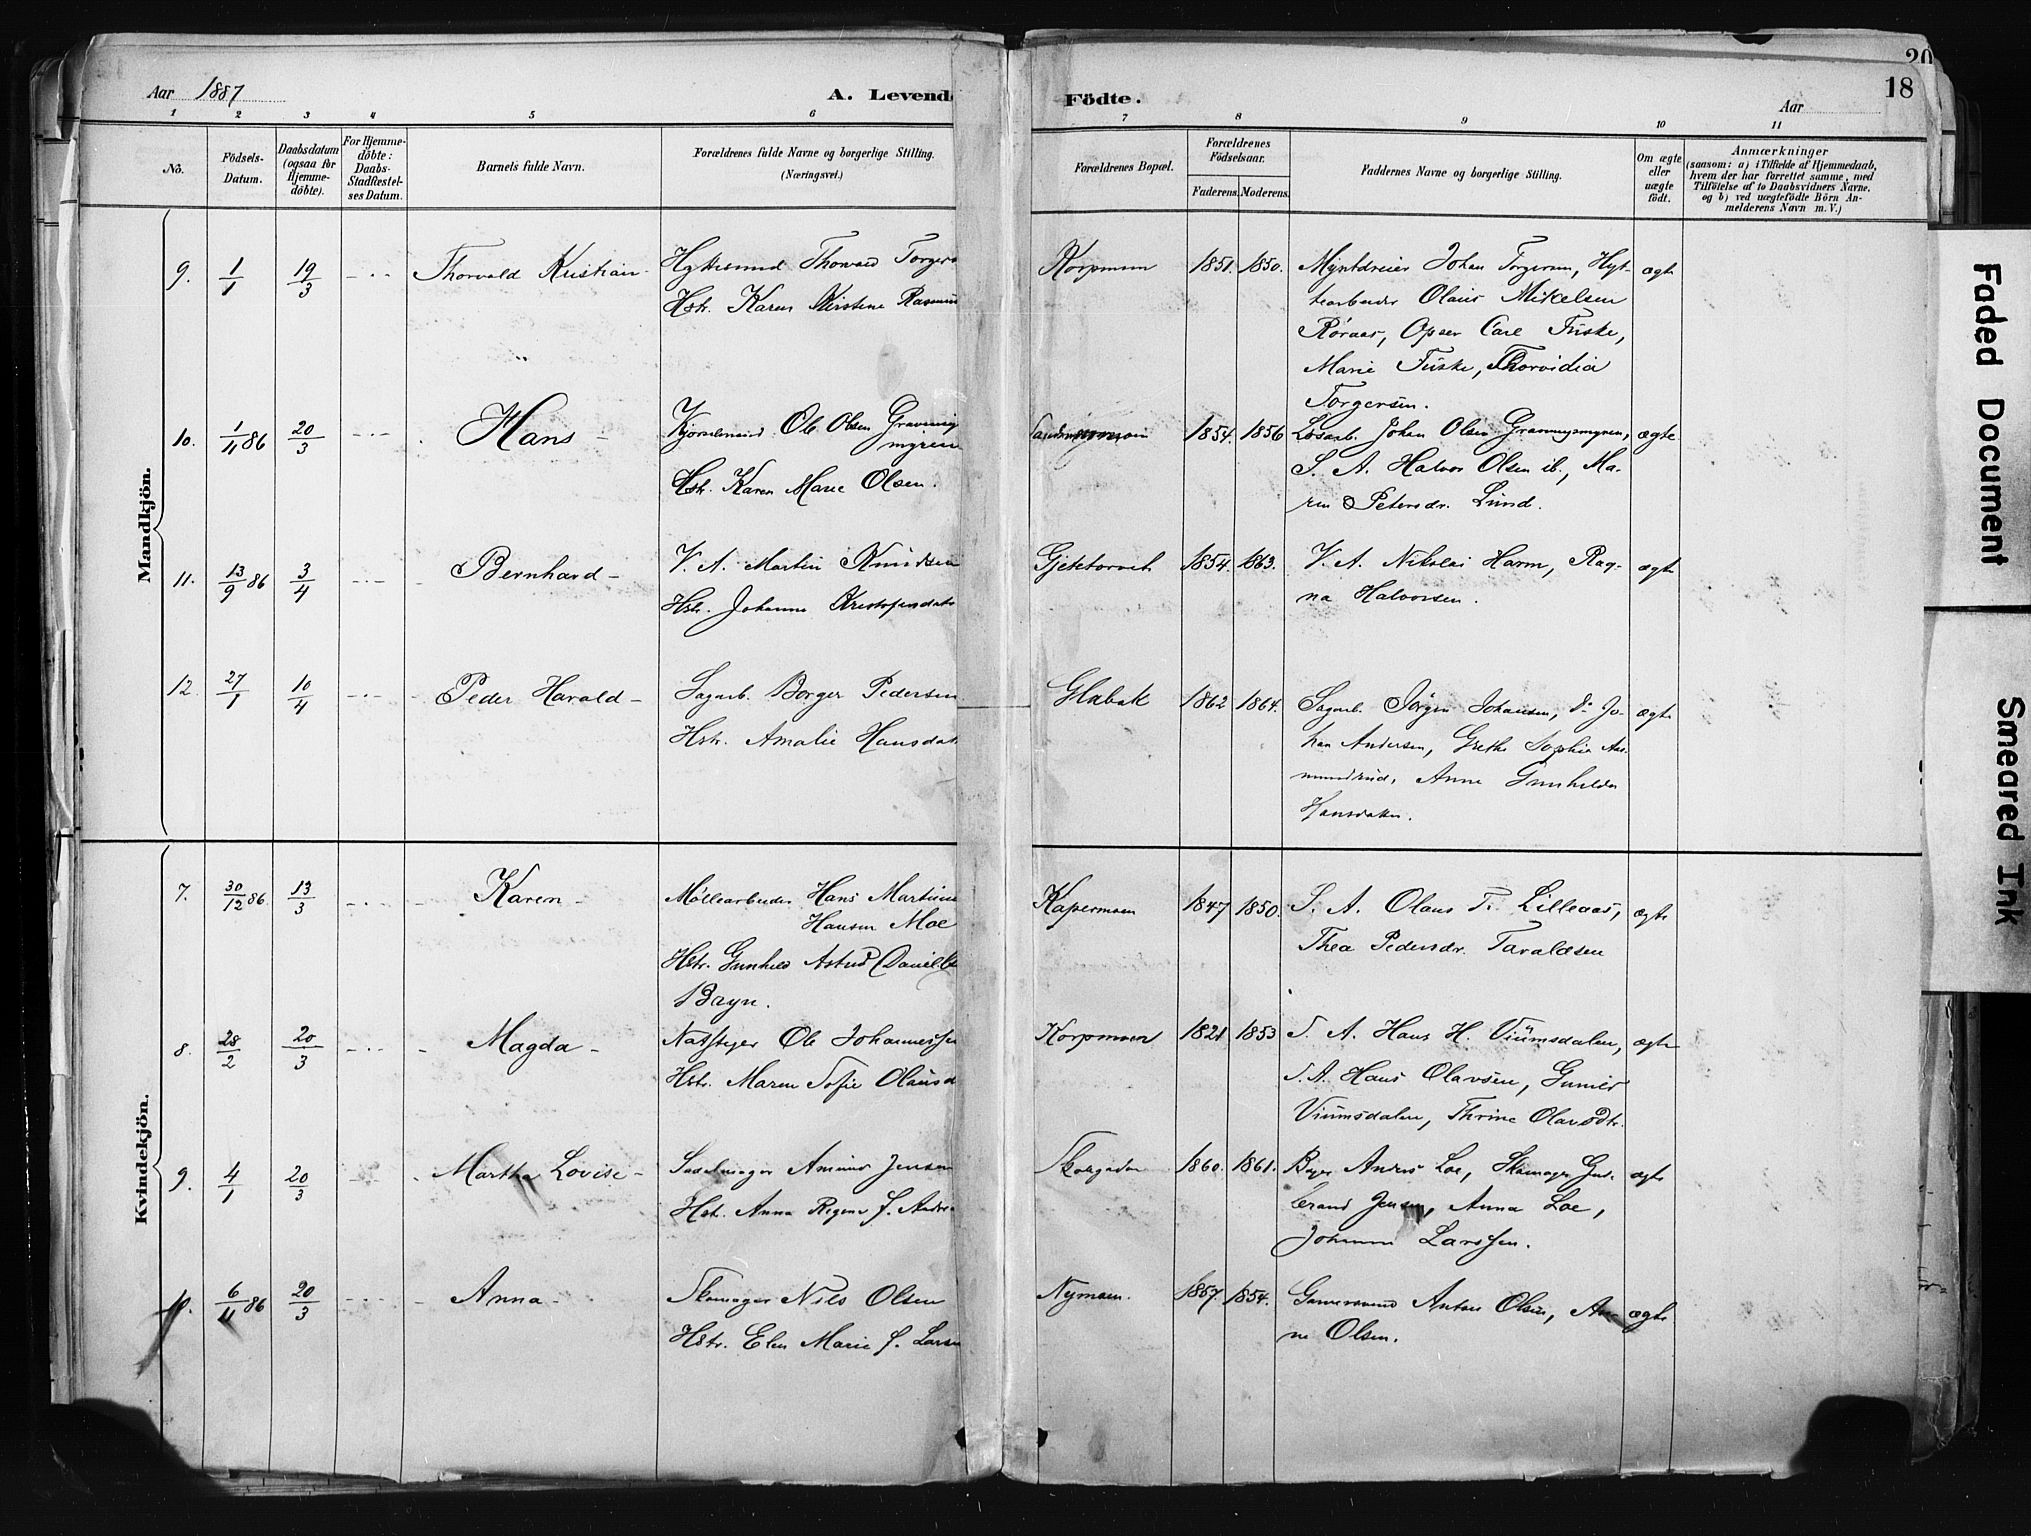 20
18
Aar 1887
A. Levende
Födte.
Aar
1 2 3 4 5 6 7 8 9 10 11
No.
Födsels-
Datum.
Daabsdatum
(ogsaa for
Hjemme-
döbte).
For Hjemme-
döbte:
Daabs-
Stadfæstel-
ses Datum.
Barnets fulde Navn.
Forældrenes fulde Navne og borgerlige Stilling.
(Næringsvei.)
Forældrenes Bopæl.
Forældrenes
Födselsaar.
Faderens. Moderens.
Faddernes Navne og borgerlige Stilling.
Om ægte
eller
uægte
födt.
Anmærkninger
(saasom: a) i Tilfælde af Hjemmedaab,
hvem der har forrettet samme, med
Tilföielse af to Daabsvidners Navne,
og b) ved uægtefödte Börn An-
melderens Navn m. V.)
Mandkjön.
9. 1/1 19/3 Thorvald Kristian
Hyttesmed Thorvald Torgers
Hstr. Karen Kirstine Rasmus
Korpmoen 1851. 1850.
Myntdreier Johan Torgersen, Hyt-
tearbeider Olaus Mikelsen
Røraas, Opser Carl Fuske,
Marie Fuske, Thorvidia
Torgersen.
ægte
10. 1/11 86 20/3 Hans
Ole Olsen Gravnings
myren
Hstr. Karen Marie Olsen.
1854. 1856
Losarb. Johan Olsen Gravningsmyren,
S. A. Halvor Olsen ib., Ma-
ren Petersdr. Lund.
ægte
11. 13/9 86 3/4 Bernhard
V. A. Martin Knudsen
Hstr. Johanne Kristofersdatr
Gjetetorvet 1854. 1863.
V. A. Nikolai Harm, Rag-
na Halvorsen.
ægte
12. 27/1 10/4 Peder Harald
Sagarb. Borger Pedersen
Hstr. Amalie Hansdatr
Glabak 1862 1864.
Sagarb. Jørgen Johansen, do Jo-
han Andersen, Grethe Sophie Aas-
mundrud, Anne Gunhilda
Hansdatter.
ægte
Kvindekjön.
7. 30/12 86 13/3 Karen
Møllearbeider Hans Martin
Hansen Moe
Hstr. Gunhild Astrid Daniel
Bayn.
Kapermoen 1847 1850.
S. A. Olaus T. Lilleaas,
Thea Pedersdr. Taraldsen
ægte
8. 28/2 20/3 Magda
Ole Johannessen
Hstr. Maren Sofie Olausd
Korpmoen 1821 1853
S. A. Hans H. Viumsdalen,
S. A. Hans Olavsen, Gunild
Viumsdalen, Thrine Olavsdtr.
ægte
9. 4/1 20/3 Martha Lovise
Sadelmager Jensen
Hstr. Anna Regine f. Andre
Skolegaden 1860. 1861.
Anders Loe, Skomager Gud-
brand Jensen, Anna Loe,
Johanne Larssen.
ægte
10. 6/11 86 20/3 Anna
Skomager Nils Olsen
Hstr. Elen Marie f. Larsen
Nymoen. 1857. 1854.
Garversvend Anton Olsen, An
ne Olsen.
ægte
Faded Document
Smeared Ink